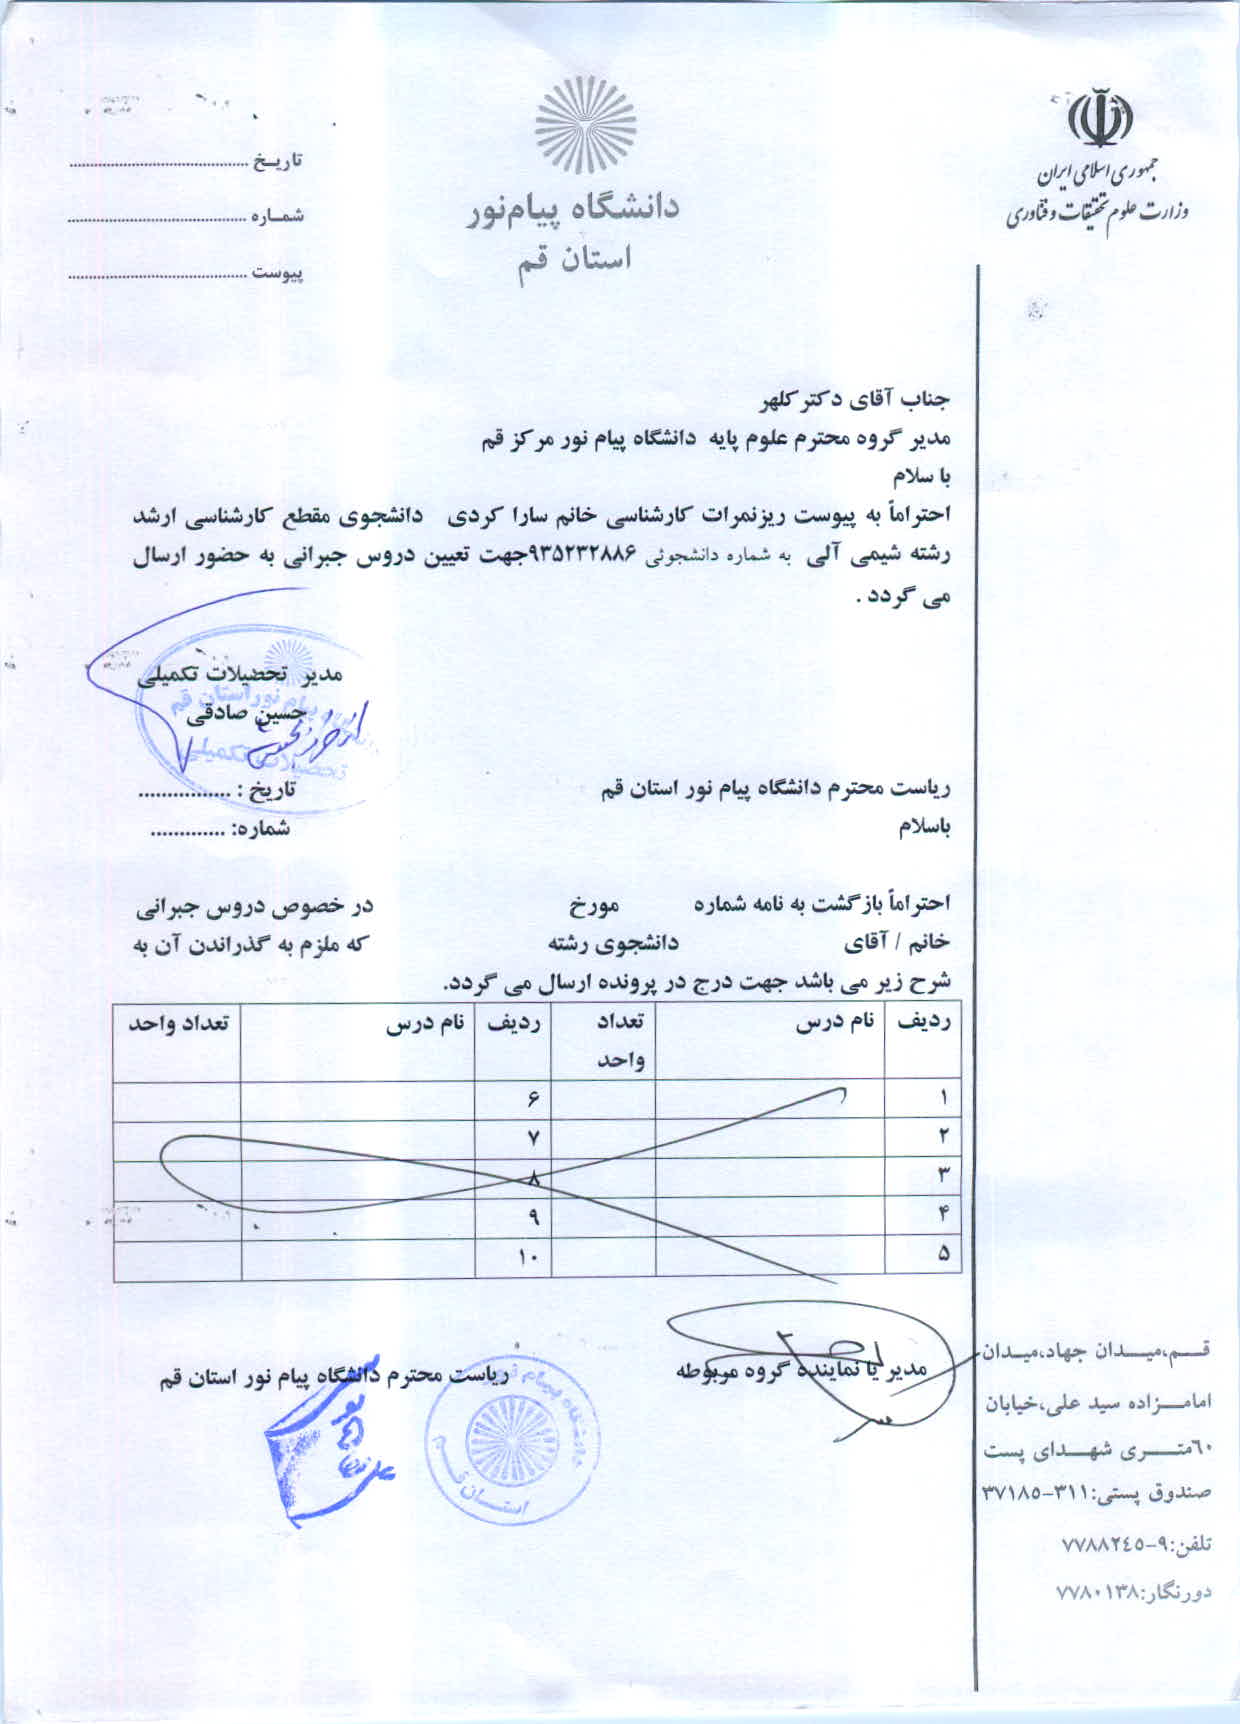 جمهوری اسلامی ایران
وزارت علوم تحقیقات و فناوری
دانشگاه پیام‌نور
استان قم
تاریـخ ............................................
شمـاره ............................................
پیوست ............................................
جناب آقای دکتر کلهر
مدیر گروه محترم علوم پایه دانشگاه پیام نور مرکز قم
با سلام
احتراماً به پیوست ریزنمرات کارشناسی خانم سارا کردی دانشجوی مقطع کارشناسی ارشد
رشته شیمی آلی به شماره دانشجوئی ۹۳۵۲۳۲۸۸۶جهت تعیین دروس جبرانی به حضور ارسال
می گردد .
مدیر تحضیلات تکمیلی
حسین صادقی
ریاست محترم دانشگاه پیام نور استان قم
تاریخ : ................
باسلام
شماره: .............
احتراماً بازگشت به نامه شماره مورخ در خصوص دروس جبرانی
خانم / آقای دانشجوی رشته که ملزم به گذراندن آن به
شرح زیر می باشد جهت درج در پرونده ارسال می گردد.
ردیف نام درس تعداد واحد ردیف نام درس تعداد واحد
۱ ۶
۲ ۷
۳ ۸
۴ ۹
۵ ۱۰
مدیر یا نماینده گروه مربوطه
ریاست محترم دانشگاه پیام نور استان قم
دانشگاه پیام نور
استان قم
قـــم،میـــدان جهاد،میـدان
امامـــزاده سید علی،خیابان
٦٠متـــری شهـــدای پست
صندوق پستی:۳۱۱-۳۷۱۸۵
تلفن:۹-۷۷۸۸۲٤٥
دورنگار:۷۷۸۰۱۳۸